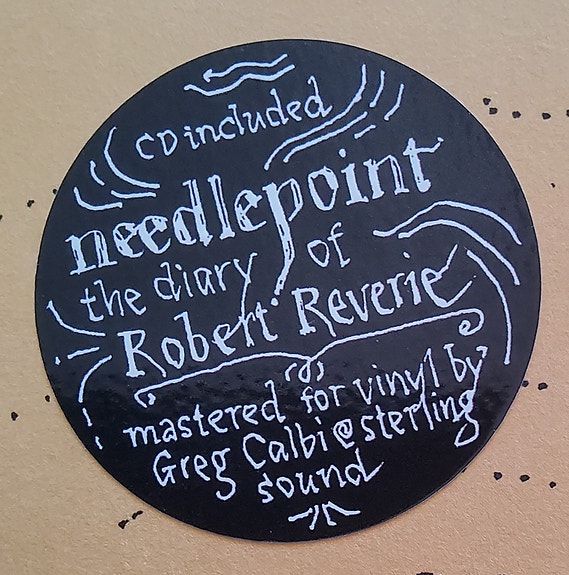 CD included
needlepoint
the diary of
Robert Reverie
mastered for vinyl by
Greg Calbi @ sterling
sound